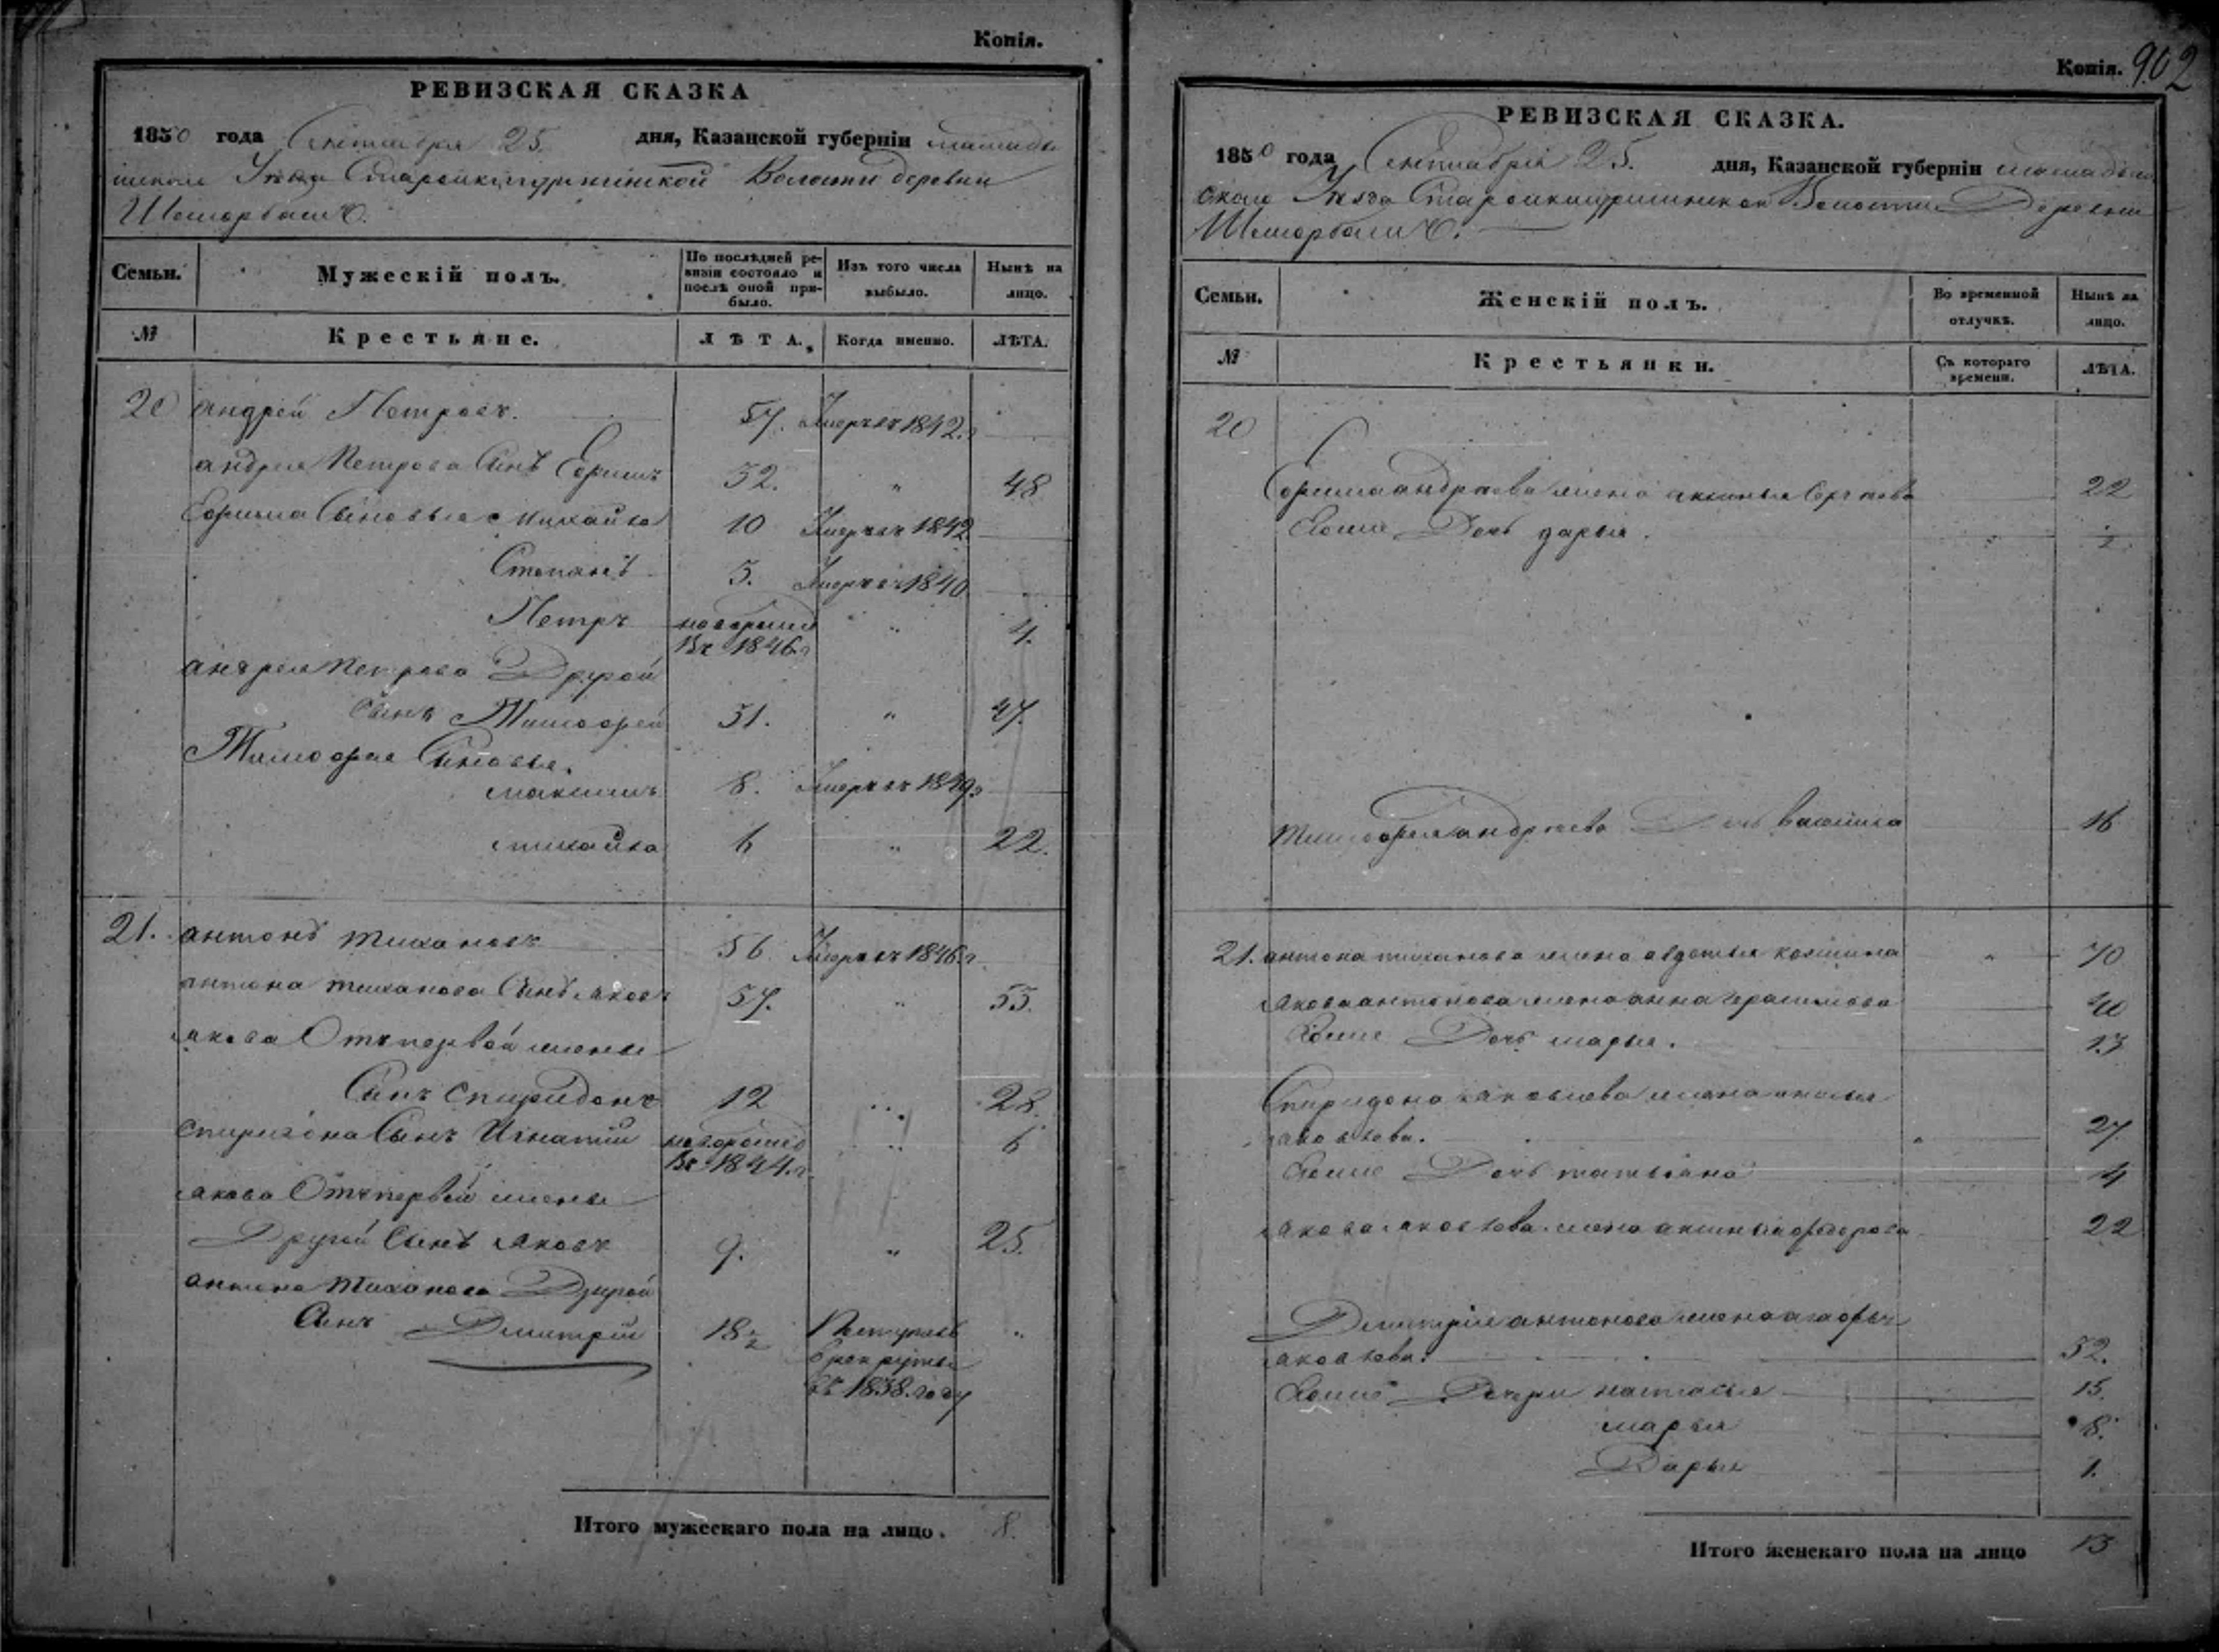 Копія.
РЕВИЗСКАЯ СКАЗКА
1850 года Сентября 25. дня, Казанской губерніи мамады
шскаго Уезда Волости деревни
Копія. 902
РЕВИЗСКАЯ СКАЗКА.
1850 года Сентября 25. дня, Казанской губерніи мамады
скаго Уезда Волости Деревни
Семьи. Мужескій полъ. По послѣдней ре-визіи состояло и послѣ оной при-было. Изъ того числа выбыло. Нынѣ на лицо.
№ Крестьяне. ЛѢТА. Когда именно. ЛѢТА.
20 андрей Петровъ. 57. Умеръ въ 1842.г
андрея Петрова Сынъ Ефимъ 32. " 48
Ефима Сыновья Михайла 10 Умеръ въ 1842
Степанъ 3. Умеръ въ 1840
Петръ новорожд " 4.
Въ 1846.г
андрея Петрова Другой
Сынъ Тимофей 31. " 47.
Тимофея Сыновья.
максимъ 8. Умеръ въ 1849г
михайла 6 " 22.
21. антонъ тихановъ 56 Умеръ въ 1846.г
антона тиханова Сынъ яковъ 37. " 53.
якова Отъ первой жены
Сынъ Спиридонъ 12 " 28.
Спиридона Сынъ Игнатій новорожд " 6
Въ 1844.г
якова Отъ первой жены
Другой Сынъ яковъ 9. " 25.
антона Тиханова Другой
Сынъ Дмитрій 18½ Поступилъ "
в рекруты
въ 1838.году
Итого мужескаго пола на лицо. 8.
Семьи. Женскій полъ. Во временной отлучкѣ. Нынѣ на лицо.
№ Крестьянки. Съ котораго времени. ЛѢТА.
20
Ефима андреева жена аксинья 22
Ево же Дочь дарья. " ½
Тимофея андреева Дочь 16
21. антона тиханова жена авдотья " 70
якова антонова жена анна герасимова 40
Ево же Дочь марья. 13
Спиридона яковлева жена
яковлева. " 27
Ево же Дочь татьяна 4
якова яковлева жена аксинья федорова 22
Дмитрія антонова жена агафья
яковлева. 32.
Ево же Дочери настасья 15.
марья 8.
Дарья 1.
Итого женскаго пола на лицо 13